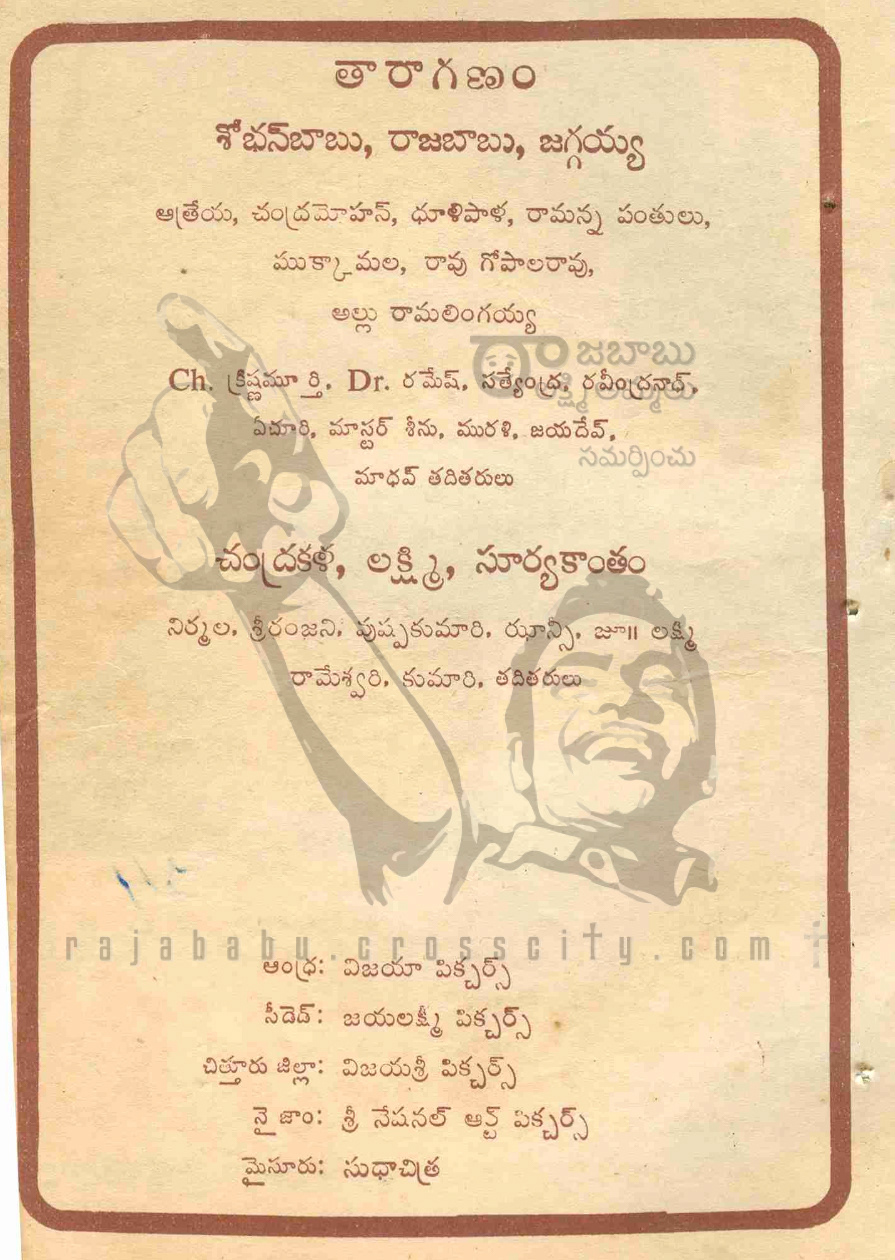 తారాగణం
శోభన్‌బాబు, రాజబాబు, జగ్గయ్య
ఆత్రేయ, చంద్రమోహన్, ధూళిపాళ, రామన్న పంతులు,
ముక్కామల, రావు గోపాలరావు,
అల్లు రామలింగయ్య
రాజబాబు
Ch. క్రిష్ణమూర్తి, Dr. రమేష్, సత్యేంద్ర, రవీంద్రనాధ్,
ఏచూరి, మాస్టర్ శీను, మురళి, జయదేవ్,
సమర్పించు
మాధవ్ తదితరులు
చంద్రకళ, లక్ష్మి, సూర్యకాంతం
నిర్మల, శ్రీరంజని, పుష్పకుమారి, ఝాన్సీ, జూ॥ లక్ష్మి
రామేశ్వరి, కుమారి, తదితరులు
rajababu.crosscity.com
ఆంధ్ర: విజయా పిక్చర్స్
సీడెడ్: జయలక్ష్మీ పిక్చర్స్
చిత్తూరు జిల్లా: విజయశ్రీ పిక్చర్స్
నైజాం: శ్రీ నేషనల్ ఆర్ట్ పిక్చర్స్
మైసూరు: సుధాచిత్ర